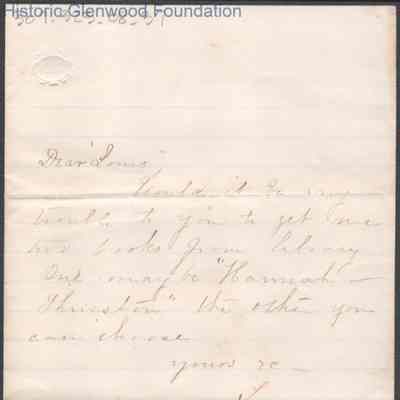 Historic Glenwood Foundation
Dear "Louis"
Would it be any
trouble to you to get me
two books from library
One may be "Hannah
Thurston" the other you
can choose
yours &c